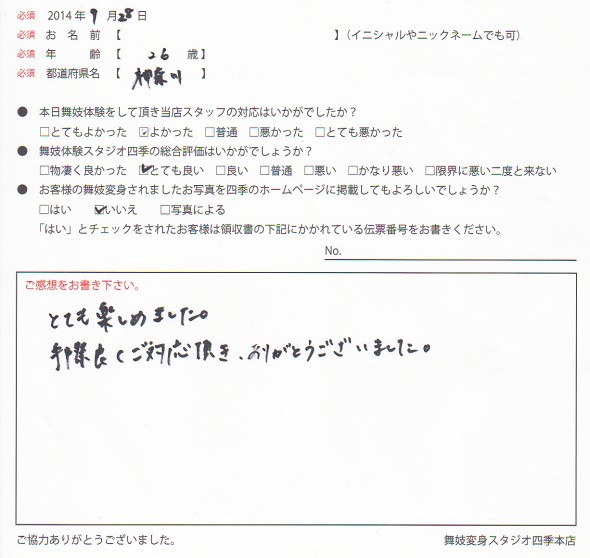 必須 2014年9月28日
必須 お名前【 】(イニシャルやニックネームでも可)
必須 年齢【 26 歳】
必須 都道府県名【 神奈川 】
● 本日舞妓体験をして頂き当店スタッフの対応はいかがでしたか?
□とてもよかった ☑よかった □普通 □悪かった □とても悪かった
● 舞妓体験スタジオ四季の総合評価はいかがでしょうか?
□物凄く良かった ☑とても良い □良い □普通 □悪い □かなり悪い □限界に悪い二度と来ない
● お客様の舞妓変身されましたお写真を四季のホームページに掲載してもよろしいでしょうか?
□はい ☑いいえ □写真による
「はい」とチェックをされたお客様は領収書の下記にかかれている伝票番号をお書きください。
No.
ご感想をお書き下さい。
とても楽しめました。
手際良くご対応頂き、ありがとうございました。
ご協力ありがとうございました。 舞妓変身スタジオ四季本店